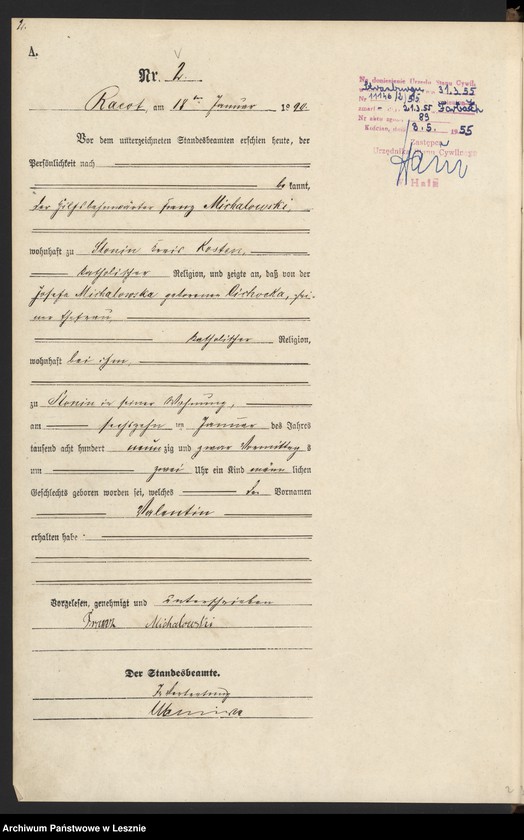 A.
Nr. 2.
Racot, am 18ten Januar 1890.
Vor dem unterzeichneten Standesbeamten erschien heute, der
Persönlichkeit nach
be kannt,
der Hilfsbahnwärter Franz Michalowski,
wohnhaft zu Slonin Kreis Kosten,
katholischer Religion, und zeigte an, daß von der
Josefa Michalowska geborenen Cichocka, sei-
ner Ehefrau
katholischer Religion,
wohnhaft bei ihm,
zu Slonin in seiner Wohnung,
am sechszehn ten Januar des Jahres
tausend acht hundert neun zig und zwar Vormittag s
um zwei Uhr ein Kind männ lichen
Geschlechts geboren worden sei, welches den Vornamen
Valentin
erhalten habe
Vorgelesen, genehmigt und unterschrieben
Franz Michalowski
Der Standesbeamte.
In Vertretung
Urzędu Stanu Cywil.
31.3.55
Nr 11146/2/55
zmarł 21.3.55
Nr aktu 89
Kościan, 3.5. 1955
Zastępca
Urzędnika Stanu Cywilnego
Archiwum Państwowe w Lesznie